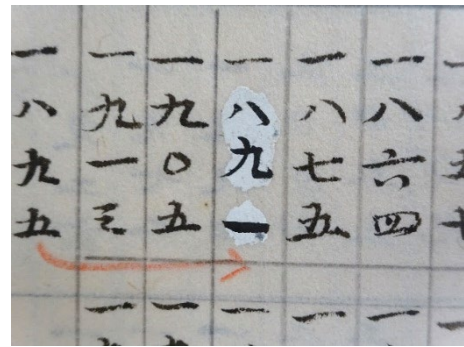 一八六四
一八七五
一八九一
一九〇五
一九一三
一八九五
一
一
一
一九
一九